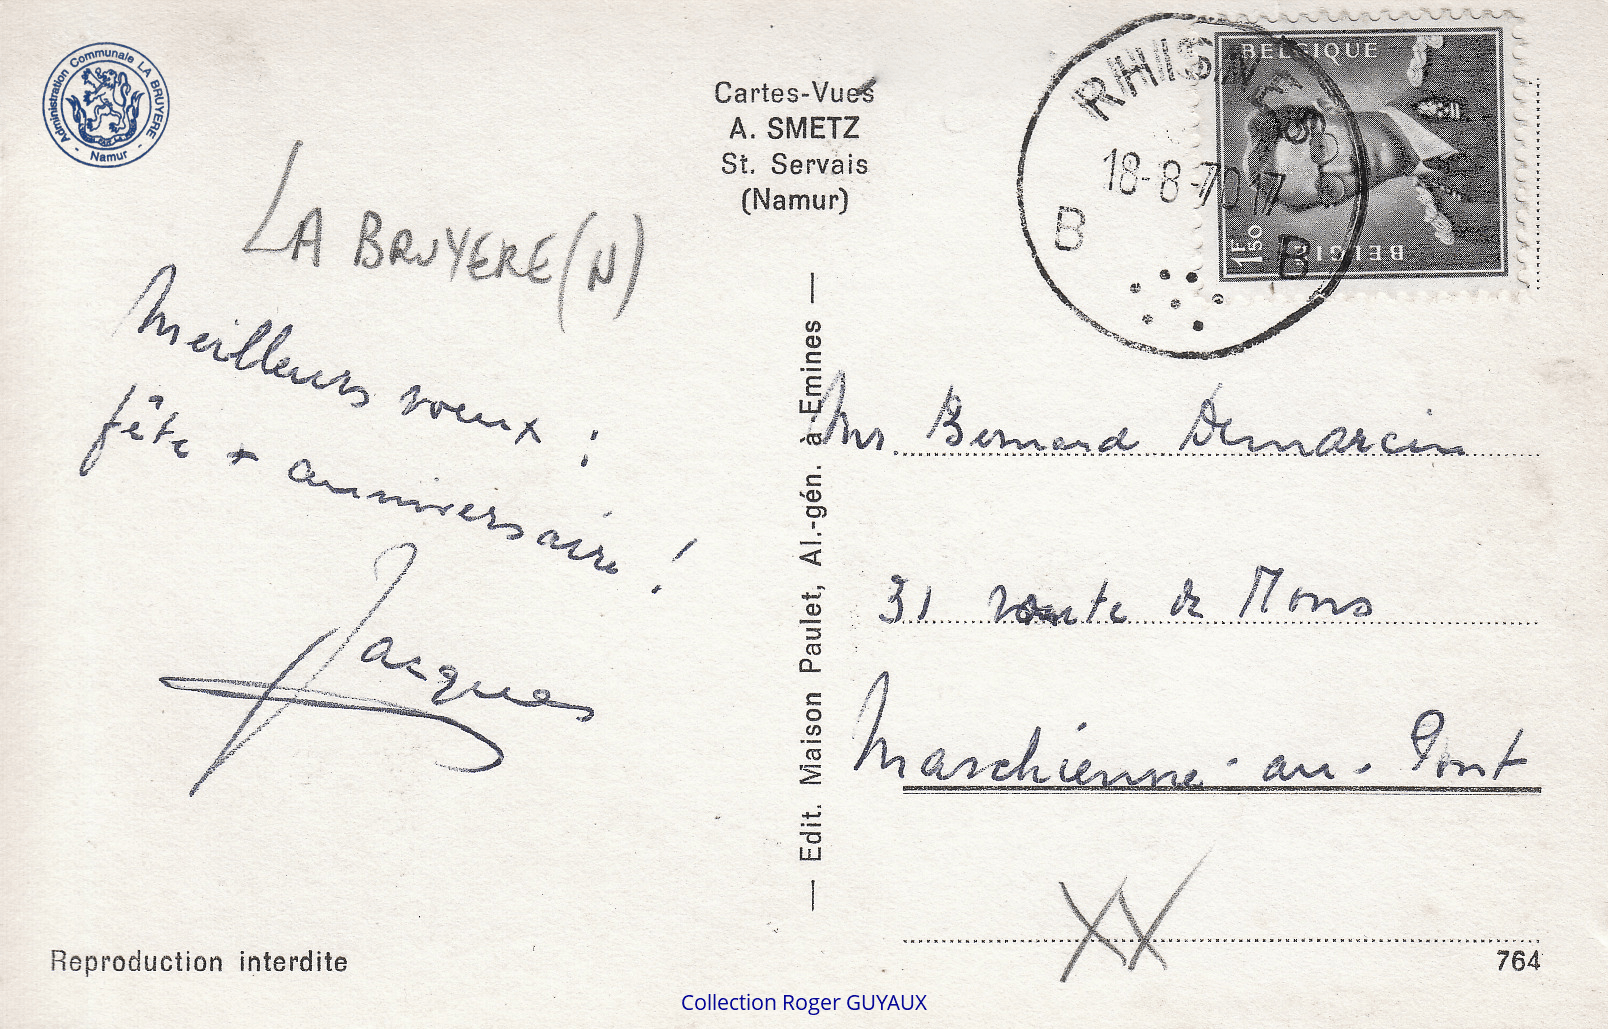 Administration Communale LA BRUYERE
- Namur -
Cartes-Vues
A. SMETZ
St. Servais
(Namur)
RHISNES
18-8-70 17
B B
BELGIQUE
1F50
BELGIE
LA BRUYERE (N)
Meilleurs voeux :
fête + anniversaire !
Jacques
— Edit. Maison Paulet, Al.-gén. à Emines —
Mr. Bernard Demarcin
31 route de Mons
Marchienne-au-Pont
XX
Reproduction interdite
764
Collection Roger GUYAUX